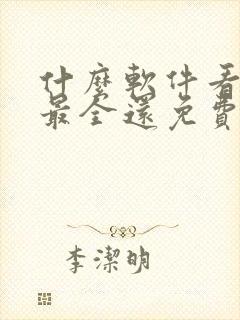 什麼軟件看
最全還免費
李潔明